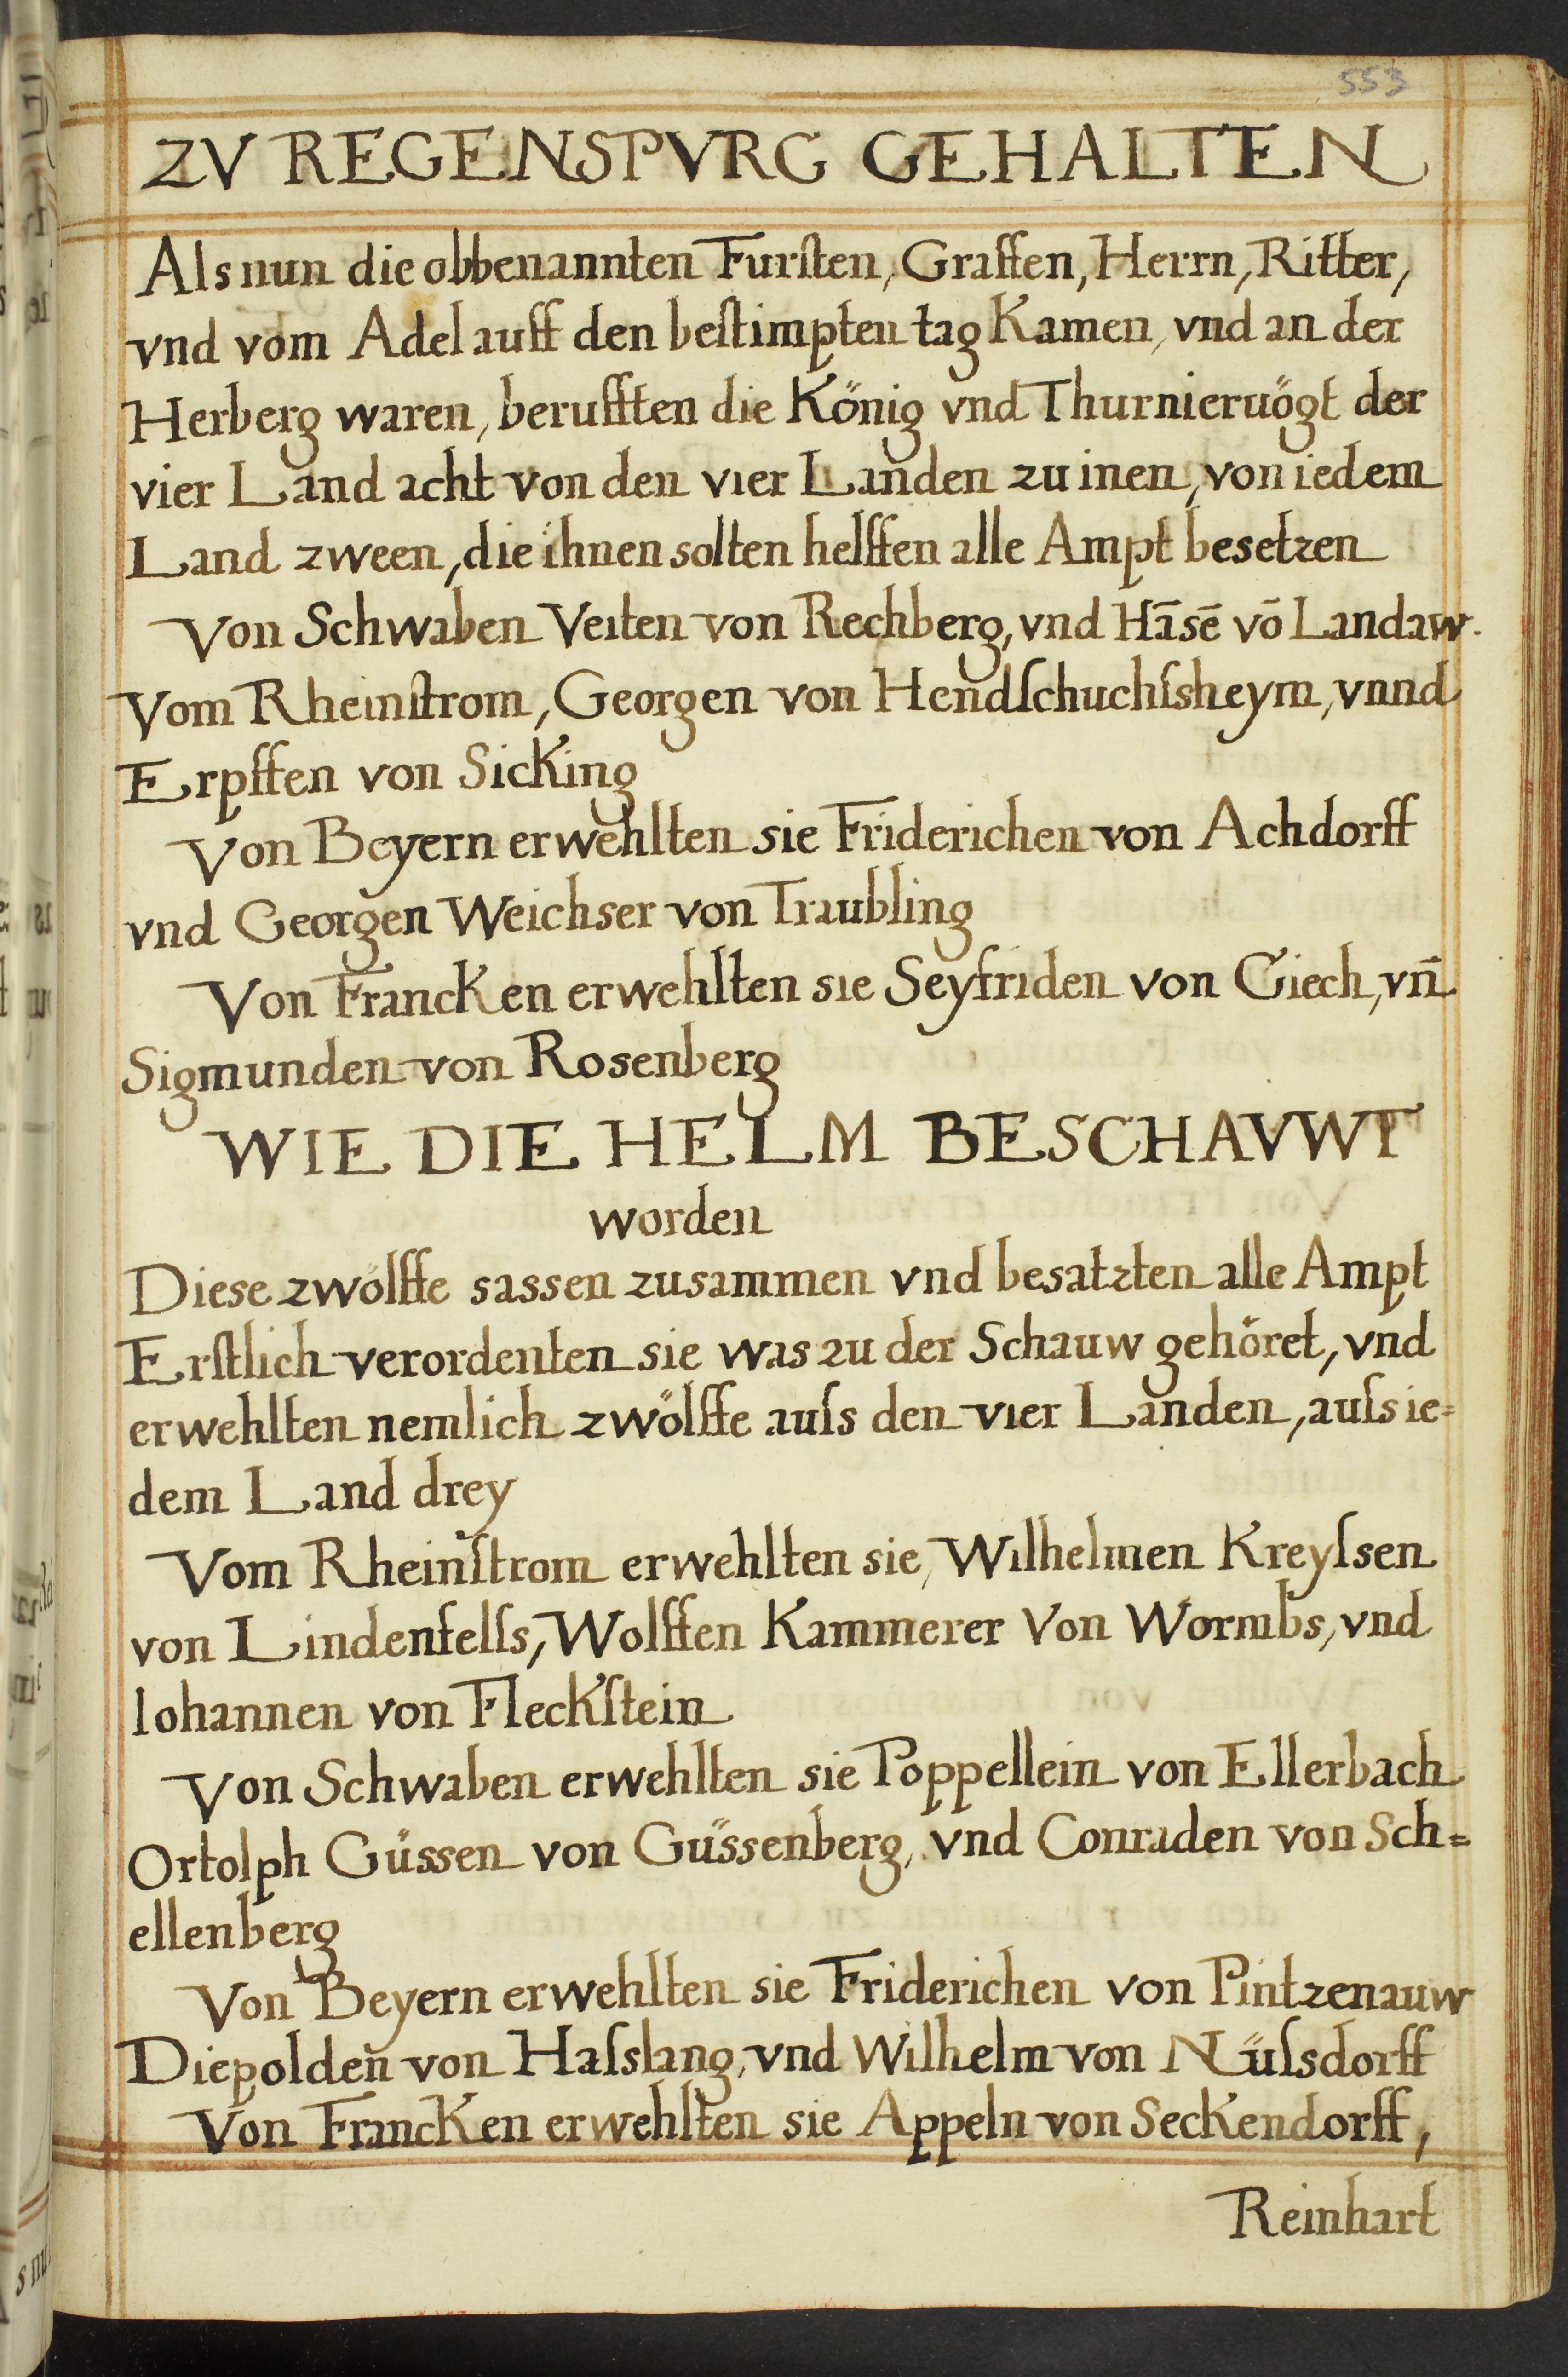 553
ZV REGENSPVRG GEHALTEN
Als nun die obbenannten Fursten, Graffen, Herrn, Ritter,
vnd vom Adel auff den bestimpten tag Kamen, vnd an der
Herberg waren, berufften die König vnd Thurnieruögt der
vier Land acht von den vier Landen zu inen, von iedem
Land zween, die ihnen solten helffen alle Ampt besetzen
Von Schwaben Veiten von Rechberg, vnd Hāsē vō Landaw.
Vom Rheinstrom, Georgen von Hendſchuchſsheym, vnnd
Erpffen von Sicking
Von Beyern erwehlten sie Friderichen von Achdorff
vnd Georgen Weichser von Traubling
Von Francken erwehlten sie Seyfriden von Giech, vn̄
Sigmunden von Rosenberg
WIE DIE HELM BESCHAVWT
worden
Diese zwölffe sassen zusammen vnd besatzten alle Ampt
Erſtlich verordenten sie was zu der Schauw gehöret, vnd
erwehlten nemlich zwölffe auſs den vier Landen, auſs ie=
dem Land drey
Vom Rheinſtrom erwehlten sie, Wilhelmen Kreyſsen
von Lindenfelſs, Wolffen Kammerer Von Wormbs, vnd
Iohannen von Fleckſtein
Von Schwaben erwehlten sie Poppellein von Ellerbach
Ortolph Güssen von Güssenberg, vnd Conraden von Sch=
ellenberg
Von Beyern erwehlten sie Friderichen von Pintzenauw
Diepolden von Haſslang, vnd Wilhelm von Nüſsdorff
Von Francken erwehlten sie Appeln von Seckendorff,
Reinhart